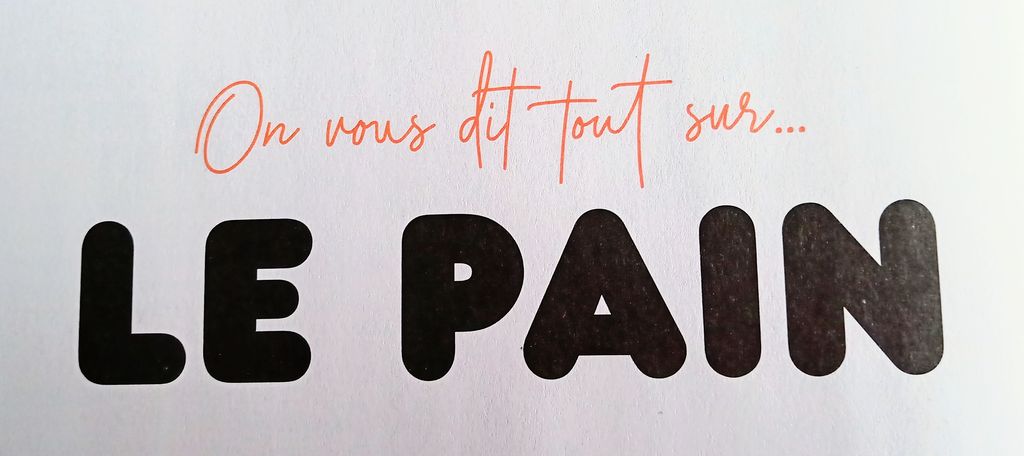 On vous dit tout sur...
LE PAIN